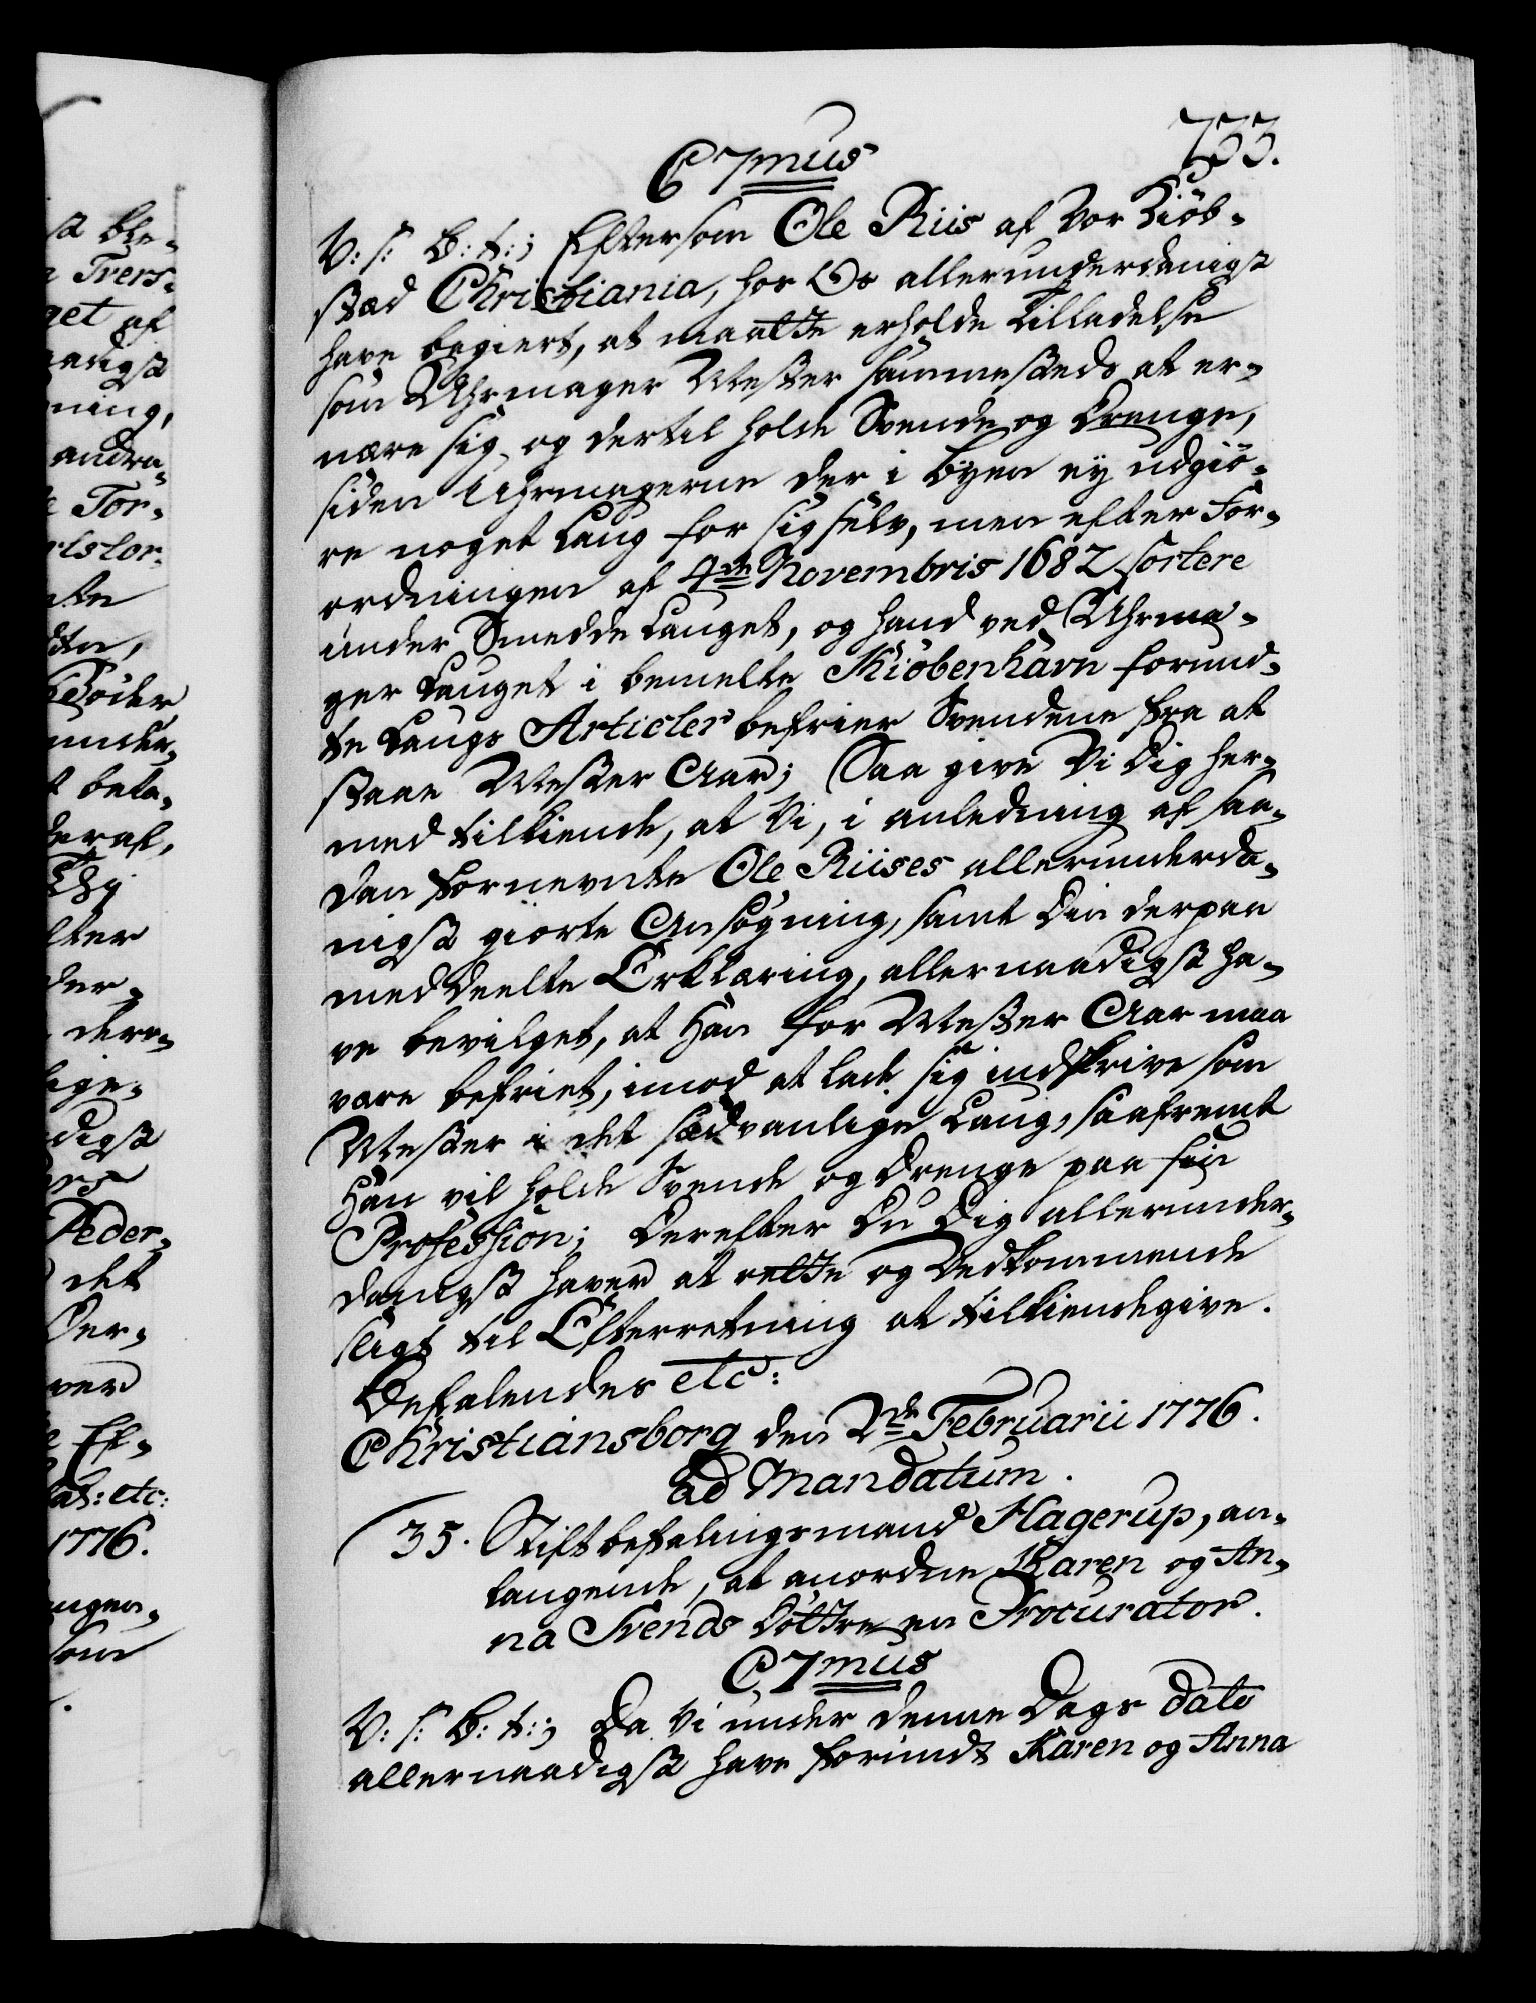 733.
C 7mus
V: s: B: t:; Eftersom Ole Riis af Vor Kiöb-
stæd Christiania, hos Os allerunderdanigst
have begiert, at maatte erholde Tilladelse
som Uhrmager Mester sammesteds at er-
nære sig, og dertil holde Svende og Drenge,
siden Uhrmagerne der i byen ey udgiö-
re noget Laug for sig selv, men efter For-
ordningen af 4de Novembris 1682 sortere
under Smedde Lauget, og hand ved Uhrma-
ger Lauget i bemelte Kiöbenhavn forund-
te Laugs Articler befrier Svendene fra at
staae Mester Aar; Saa give Vi Dig her-
med tilkiende, at Vi, i anledning af saa-
dan fornevnte Ole Riises allerunderda-
nigst giorte Ansøgning, samt Din derpaa
meddeelte Erklæring, allernaadigst ha-
ve bevilget, at Han for Mester Aar maa
være befriet, imod at lade sig indskrive som
Mester i det sædvanlige Laug, saafremt
Han vil holde Svende og Drenge paa sin
Profession; Derefter Du Dig allerunder-
danigst haver at rette og Vedkommende
sligt til Efterretning at tilkiendegive.
Befalendes etc:
Christiansborg den 2de Februarii 1776.
Ad Mandatum.
35. Stiftbefalingsmand Hagerup, an-
langende, at anordne Karen og An-
na Svends Döttre en Procurator.
C 7mus
V: s: B: t:; Da Vi under denne Dags dato
allernaadigst have forundt Karen og Anna